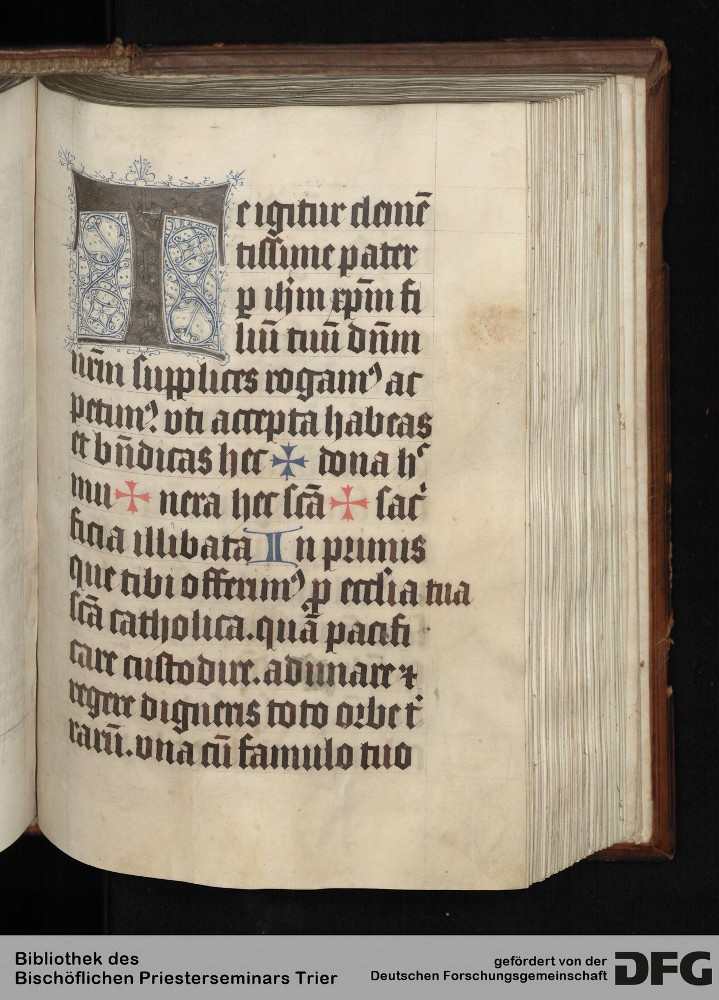 Te igitur clemē
tissime pater
ꝑ ihm̄ xp̄m fi
liū tuū dn̄m
nr̄m supplices rogamꝰ ac
petimꝰ vti accepta habeas
et bn̄dicas hec ✠ dona hᶜ
mu ✠ nera hec scā ✠ sac̄
ficia illibata In primis
que tibi offerimꝰ ꝓ ecclsia tua
scā catholica. quā pacifi
care custodire. adunare ⁊
regere digneris toto orbe t̄
rarū. vna cū famulo tuo
Bibliothek des
Bischöflichen Priesterseminars Trier
gefördert von der
Deutschen Forschungsgemeinschaft DFG